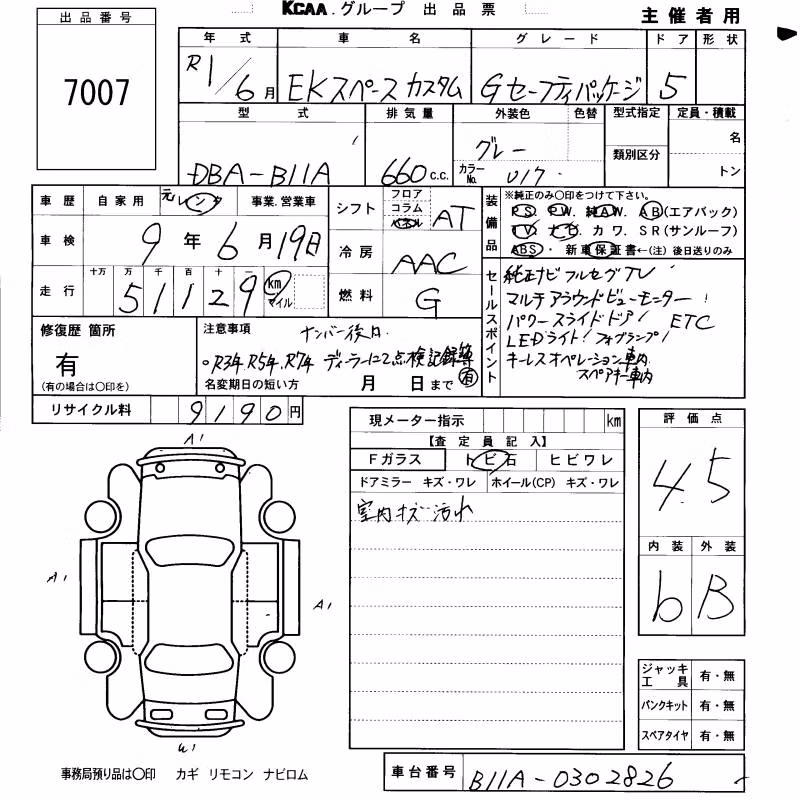 KCAA.グループ 出品票
主催者用
出品番号
7007
年式 車名 グレード ドア 形状
R1/6月 EKスペースカスタム Gセーフティパッケージ 5
型式 排気量 外装色 色替 型式指定 定員・積載
DBA-B11A 660c.c. グレー カラーNo. U17 類別区分 名 トン
車歴 自家用 元レンタ 事業.営業車
シフト フロア コラム パネル AT
装備品 ※純正のみ○印をつけて下さい。
PS. PW. 純AW. AB(エアバック)
TV. ナビ カワ. SR(サンルーフ)
ABS・新車保証書←(注)後日送りのみ
車検 9年6月19日
冷房 AAC
走行 十万 万 千 百 十 一
51129 km マイル
燃料 G
セールスポイント
純正ナビフルセグTV
マルチアラウンドビューモニター!
パワースライドドア! ETC
LEDライト! フォグランプ!
キーレスオペレーション車内
スペアキー車内
修復歴 箇所
有
(有の場合は○印を)
注意事項 ナンバー後日
○R3年.R5年.R7年 ディーラーにて点検記録簿有
名変期日の短い方 月 日まで
リサイクル料 9190円
現メーター指示 km
【査定員記入】
Fガラス トビ石 ヒビワレ
ドアミラー キズ・ワレ ホイール(CP) キズ・ワレ
室内キズ汚れ
評価点
4.5
内装 外装
b B
A1
A1
A1
W1
ジャッキ工具 有・無
パンクキット 有・無
スペアタイヤ 有・無
事務局預り品は○印 カギ リモコン ナビロム
車台番号 B11A-0302826